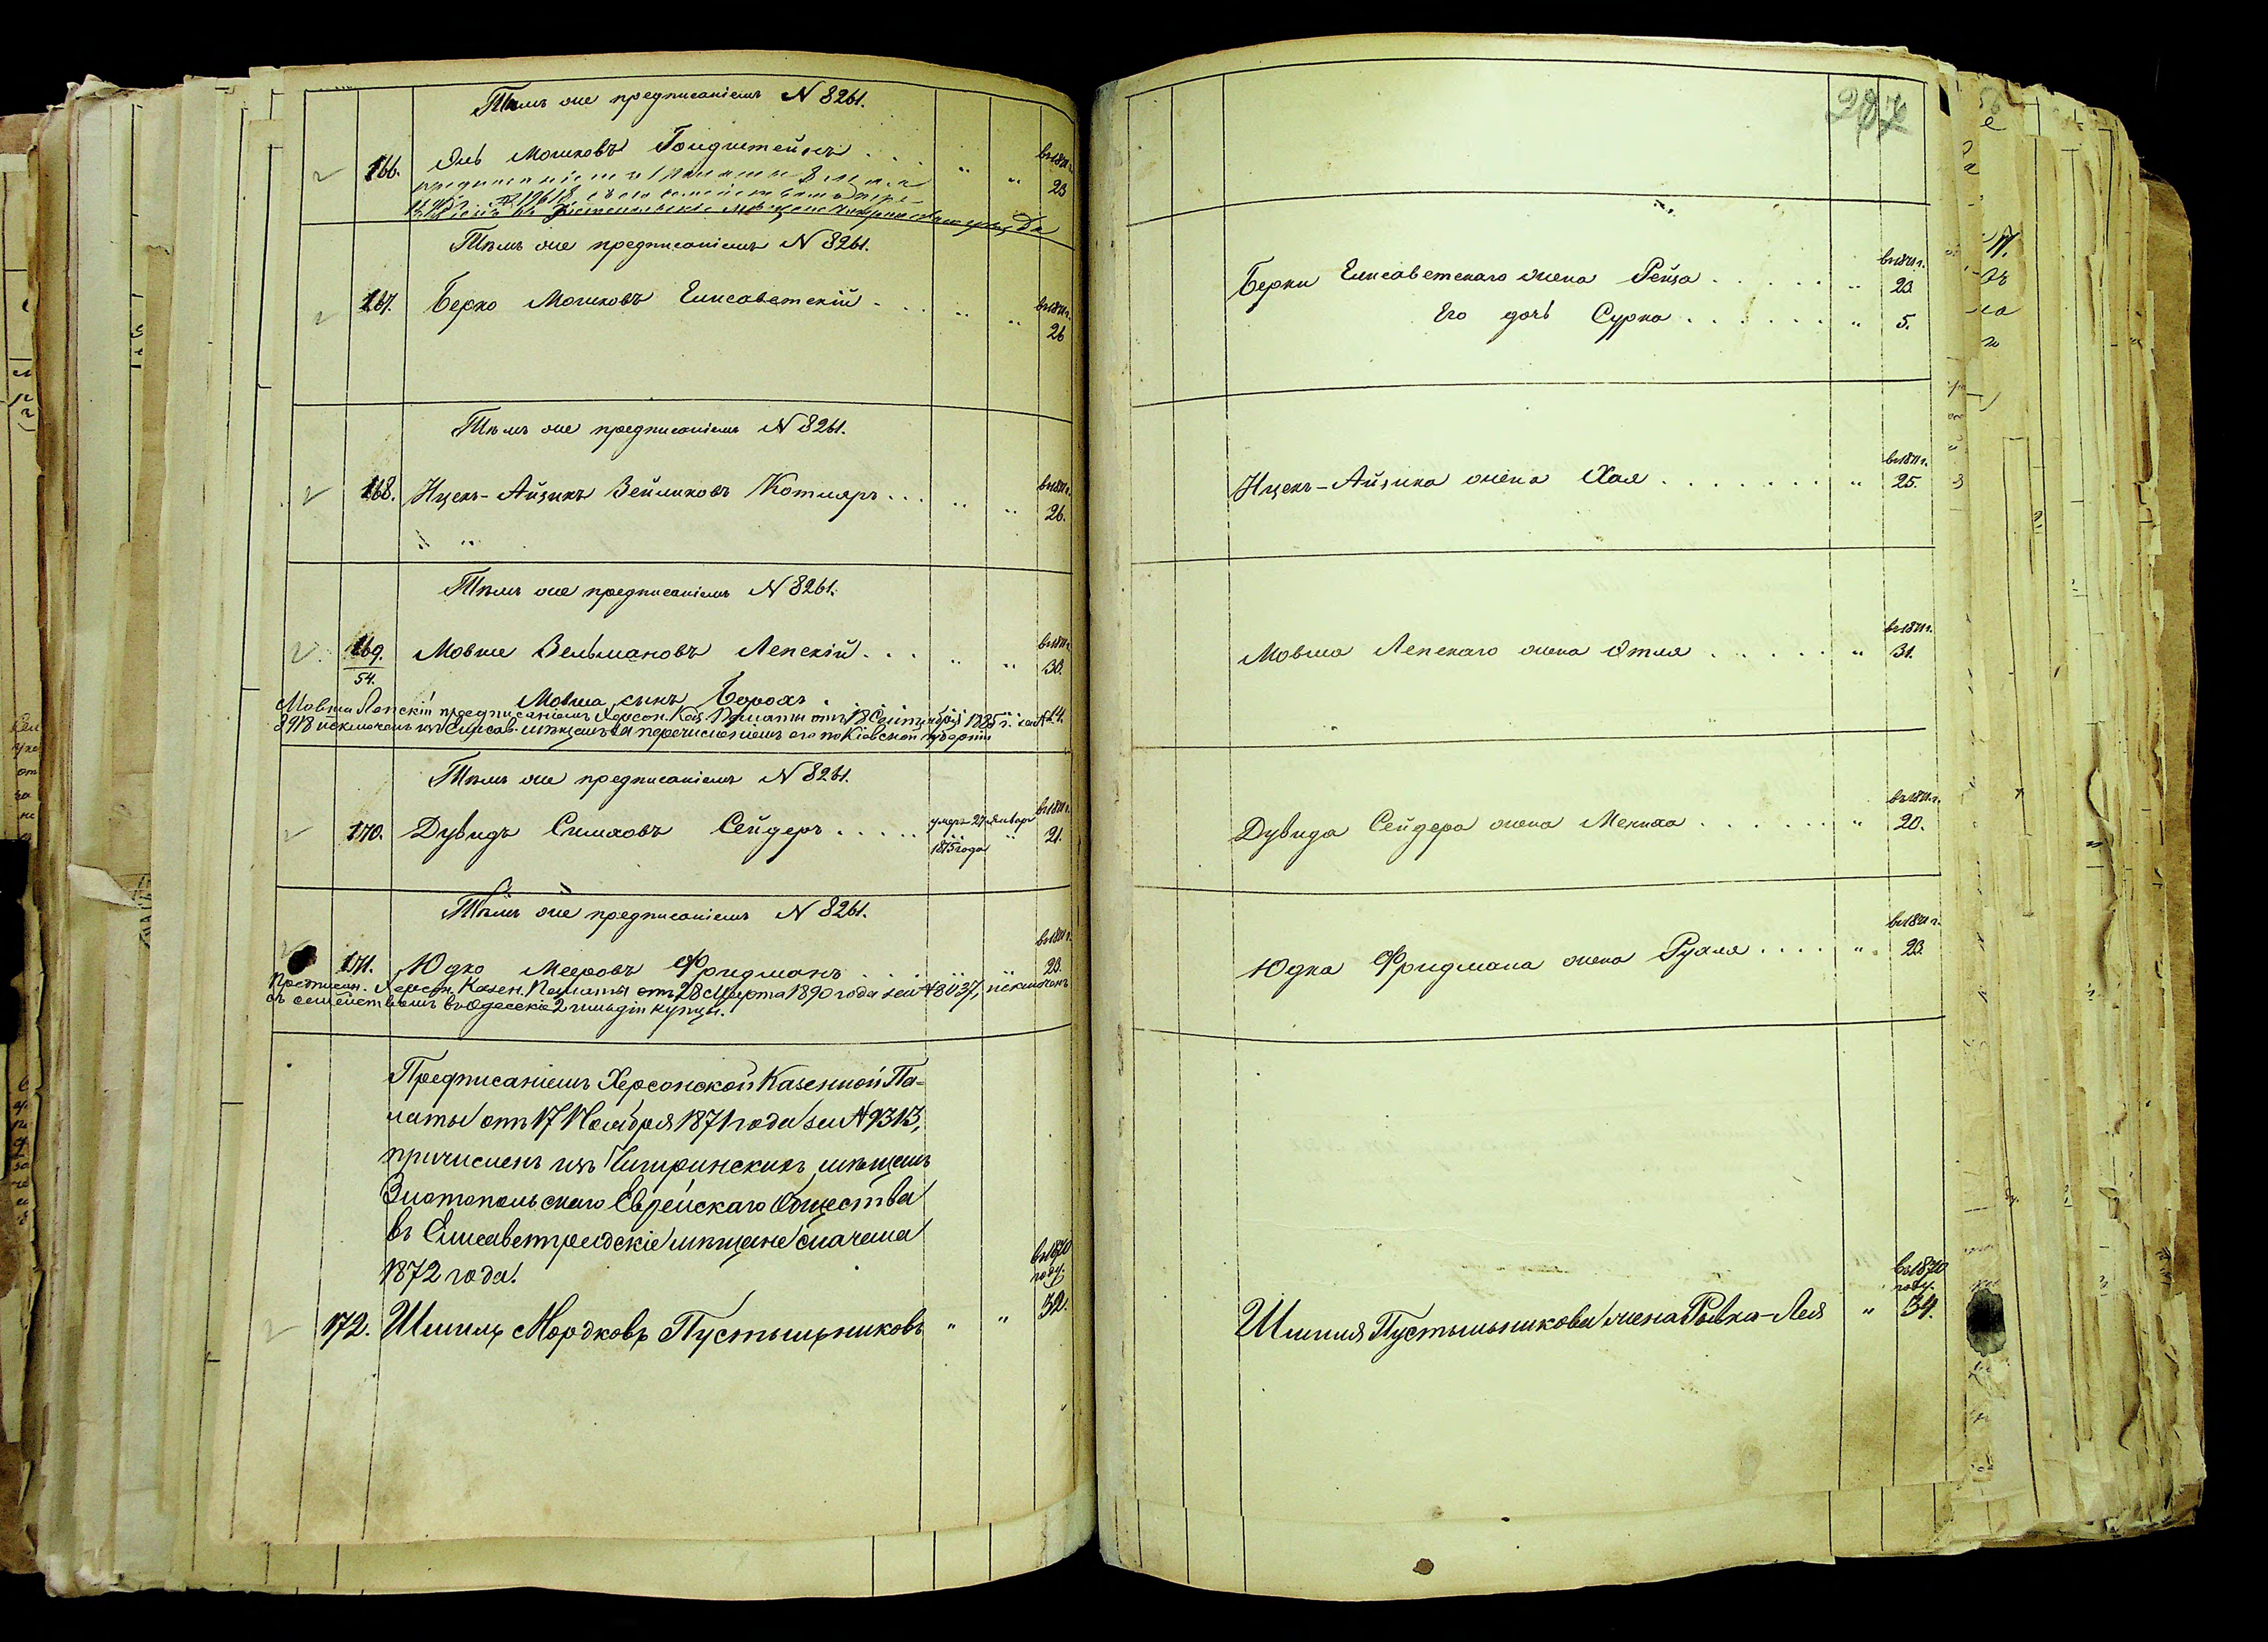 Тѣмъ же предписаніемъ N 8261.
166. Янь Мошковъ Гольдштейнъ . . . " " въ 1871 г. 23
Тѣмъ же предписаніемъ N 8261.
167. Берко Мошковъ Елисаветскій . . . " " въ 1871 г. 26
Тѣмъ же предписаніемъ N 8261.
168. Ицекъ-Айзикъ Зейликовъ Котляръ . . . " " въ 1871 г. 26.
Тѣмъ же предписаніемъ N 8261.
169. Мовша Зельмановъ Лепскій . . . " " въ 1871 г. 30.
54.
Мовша сынъ Борохъ .
Мовша Лепскій предписаніемъ Херсон. Каз. Палаты отъ 18 Сентября 1885 г. за № 14.
8918 исключенъ изъ Елисав. мѣщанъ за перечисленіемъ его по Кіевской губерніи
Тѣмъ же предписаніемъ N 8261.
170. Дувидъ Симховъ Сейдеръ . . . . . умеръ 27 Января 1875 года " въ 1871 г. 21.
Тѣмъ же предписаніемъ N 8261.
171. Юдко Мееровъ Фридманъ . . . " " въ 1871 г. 23.
Предписан. Херсон. Казен. Палаты отъ 28 Марта 1890 года за № 3437, исключенъ
съ семействомъ въ Одесскіе 2 гильдіи купцы.
Предписаніемъ Херсонской Казенной Па-
латы отъ 17 Ноября 1871 года за № 9313,
причисленъ изъ Чигиринскихъ мѣщанъ
Златопольскаго Еврейскаго Общества
въ Елисаветградскіе мѣщане сначала
1872 года.
172. Шмиль Мордковъ Пустыльниковъ " " въ 1870 году. 32.
297
Берки Елисаветскаго жена Рейза . . . . . " въ 1871 г. 23.
Его дочь Сурка . . . . . . " 5.
Ицекъ-Айзика жена Хая . . . . . . . " въ 1871 г. 25.
Мовша Лепскаго жена Этля . . . . . " въ 1871 г. 31.
Дувида Сейдера жена Мениха . . . . . . " въ 1871 г. 20.
Юдка Фридмана жена Рухля . . . . " въ 1871 г. 23.
Шмиля Пустыльникова жена Рывка-Лея " въ 1870 году. 34.